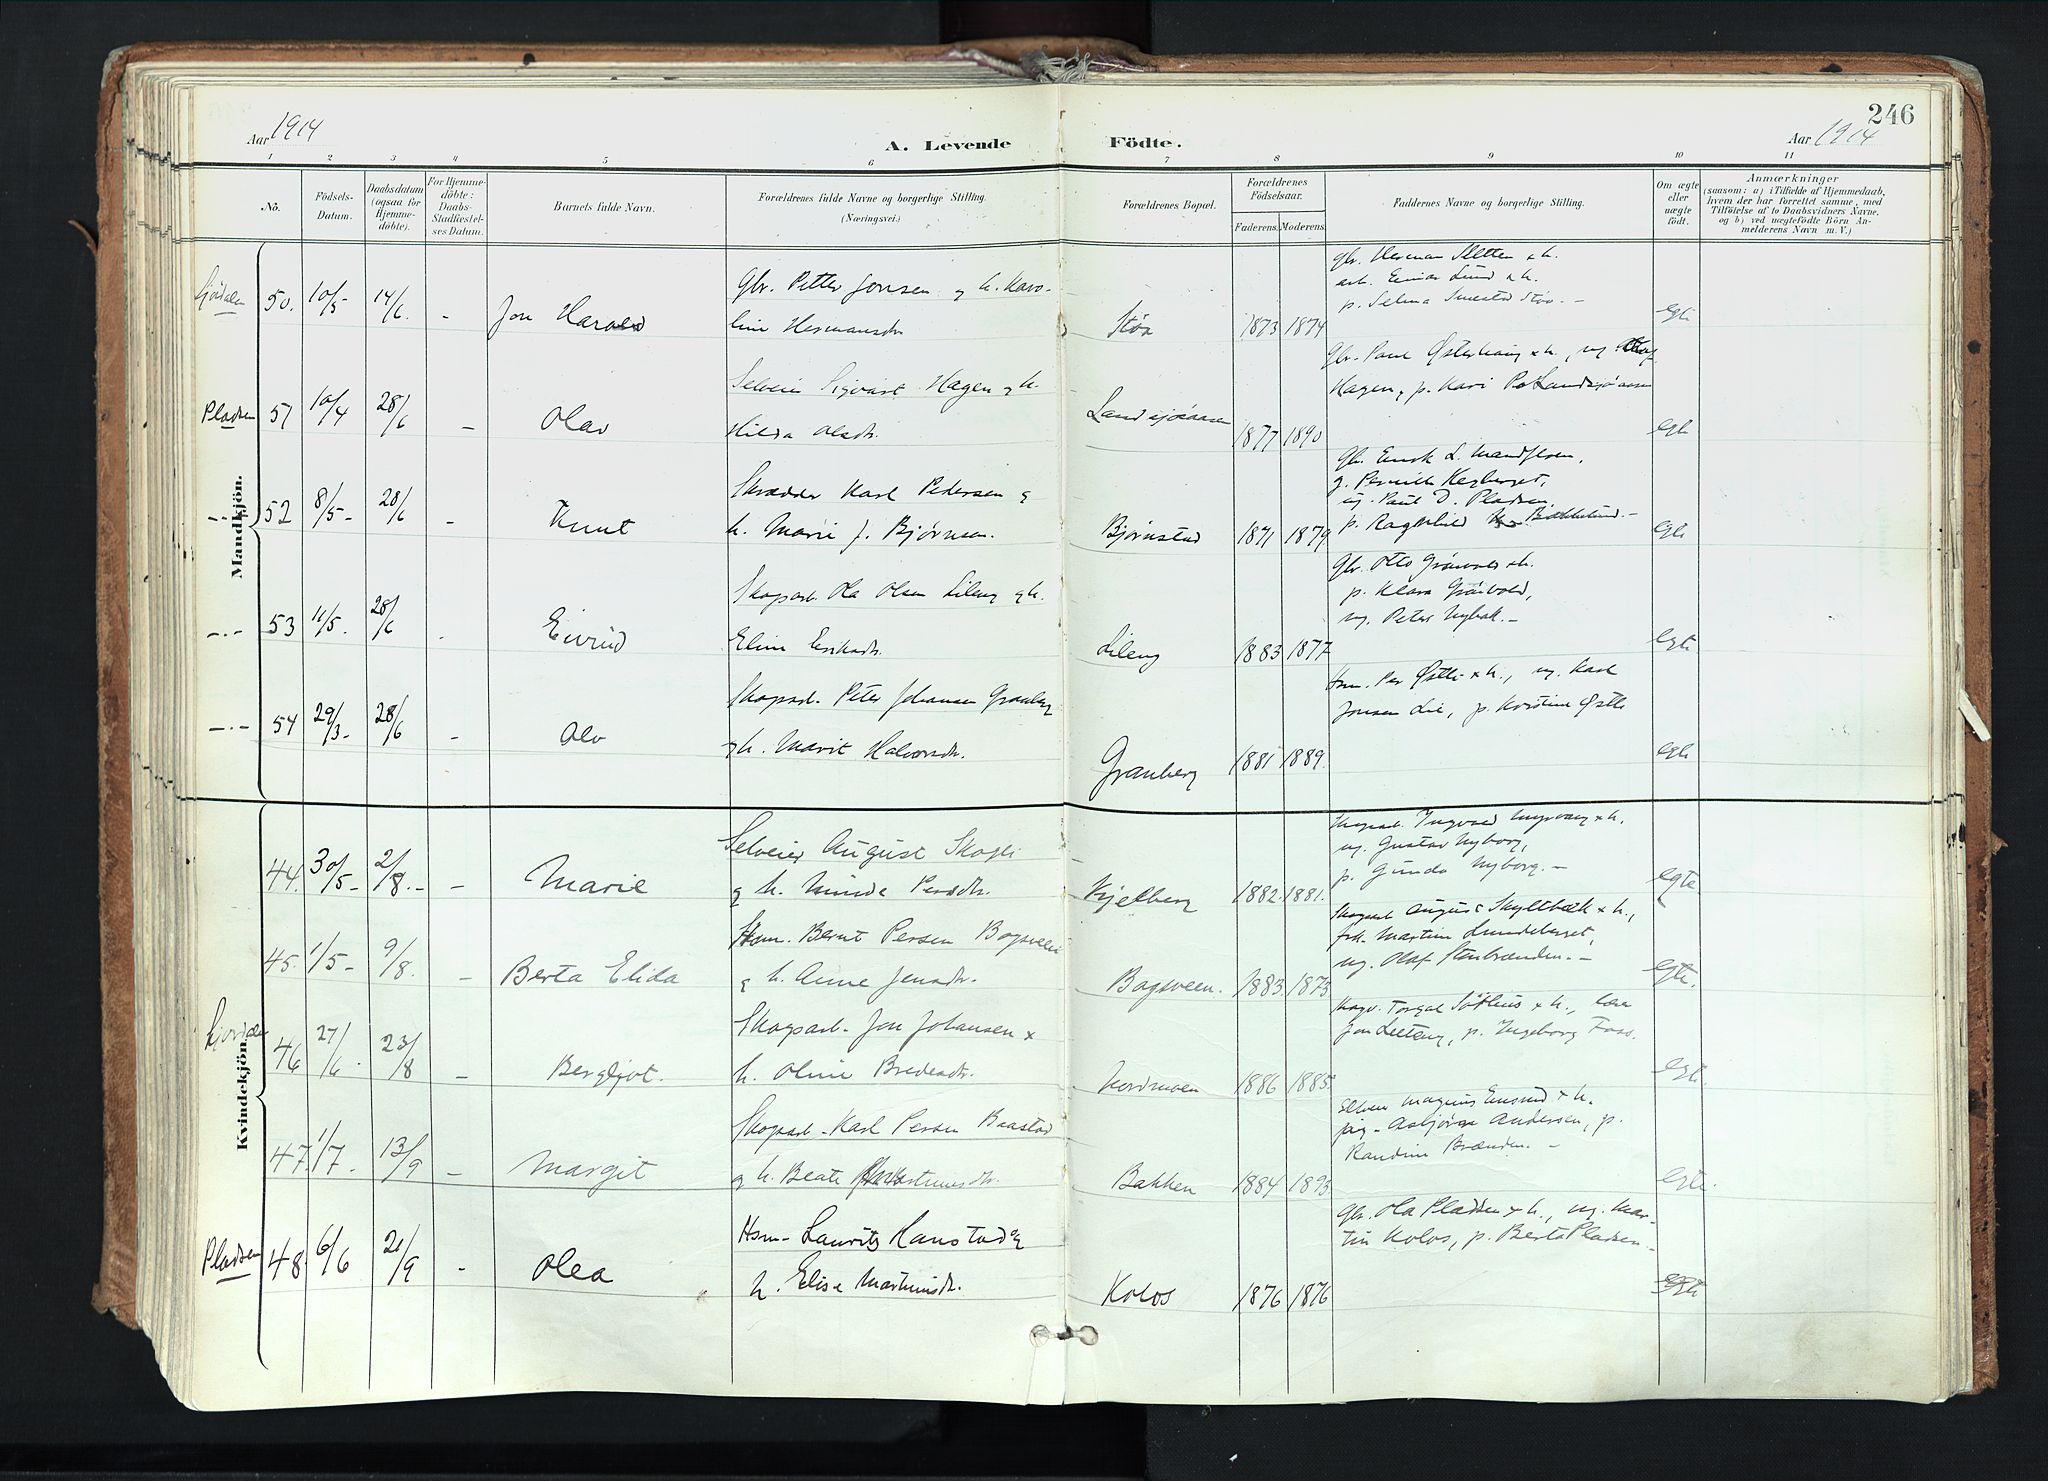 Aar 1914
A. Levende Födte.
246
Aar 1914
1 2 3 4 5 6 7 8 9 10 11
No. Födsels-Datum. Daabsdatum (ogsaa for Hjemme-döbte). For Hjemme-döbte: Daabs-Stadfæstel-ses Datum. Barnets fulde Navn. Forældrenes fulde Navne og borgerlige Stilling. (Næringsvei.) Forældrenes Bopæl. Forældrenes Födselsaar. Faderens. Moderens. Faddernes Navne og borgerlige Stilling. Om ægte eller uægte födt. Anmærkninger (saasom: a) i Tilfælde af Hjemmedaab, hvem der har forrettet samme, med Tilföielse af to Daabsvidners Navne, og b) ved uægtefödte Börn An-melderens Navn m. V.)
Mandkjön.
50. 10/5 14/6. - Jon Harald
Gbr. Petter Jonsen og h. Karo-
line Hermansdr.
Støa 1873 1874
gbr. Herman Sletten x h.
arb. Einar Lund x h.
p. Selma Smestad Støa. -
egte
Pladsen 51 10/4 28/6 - Olav
Selveier Sigvart Hagen og h.
Hilda Olsdr.
Landsjøaasen 1877 1890
Gbr. Paul Østerhaug x h., ug. Olaf
Hagen, p. Kari P. Landsjøaasen
egte
-.- 52 8/5- 28/6 - Knut
Skrædder Karl Pedersen og
h. Marie J. Bjørnsen.
Bjørnstad 1871 1879
p. Ragnhild Bakkelund -
ug. Paul D. Pladsen
egte
-.- 53 11/5. 28/6 - Eivind
Skogsarb. Ola Olsen Lileng og h.
Eline Eriksdr.
Lileng 1883 1877
Gbr. Otto Grønvold x h.
p. Klara Grønvold,
ug. Peter Nybak. -
egte
-.- 54 29/3- 28/6 - Olv
Skogsarb. Peter Johansen Granberg
og h. Marit Halvorsdr.
Granberg 1881 1889.
Hsm. Per Østli x h., ug. Karl
Jonsen Lie, p. Kristine Østli
egte
Kvindekjön.
44. 30/5- 2/8.- - Marie
Selveier August Skogli
og h. Persdr.
Kjelberg 1882. 1881.
Skogsarb. Ingvald x h.
ug. Gustav Nyborg,
p. Gunda Nyborg. -
egte
45. 1/5- 9/8. - Berta Elida
Hsm. Bernt Persen Bogsveen
og h. Anne Jensdr.
Bogsveen. 1883 1873
Skogsarb. August x h.,
frk. Martine Lundeberget,
ug. Olaf Stenbrænden. -
egte.
46 27/6. 23/8 - Bergljot.
Skogsarb. Jon Johansen x
h. Oline Bredesdr.
Nordmoen 1886 1885
x h.,
p. Ingeborg Foss.
egte.
47 1/7. 13/9 - Margit
Skogsarb. Karl Persen Baastad
og h. Beate
Bakken 1884 1893
Magnus x h.
Asbjørn Andersen, p.
Randine Brænden. -
egte.
Pladsen 48 6/6 21/9 - Olea
Hsm. Laurits Hanstad og
h. Elise Martinsdr.
Kolos 1876 1876
Gbr. Ola Pladsen x h., ug. Mar-
tin Kolos, p. Berta Pladsen -
egte